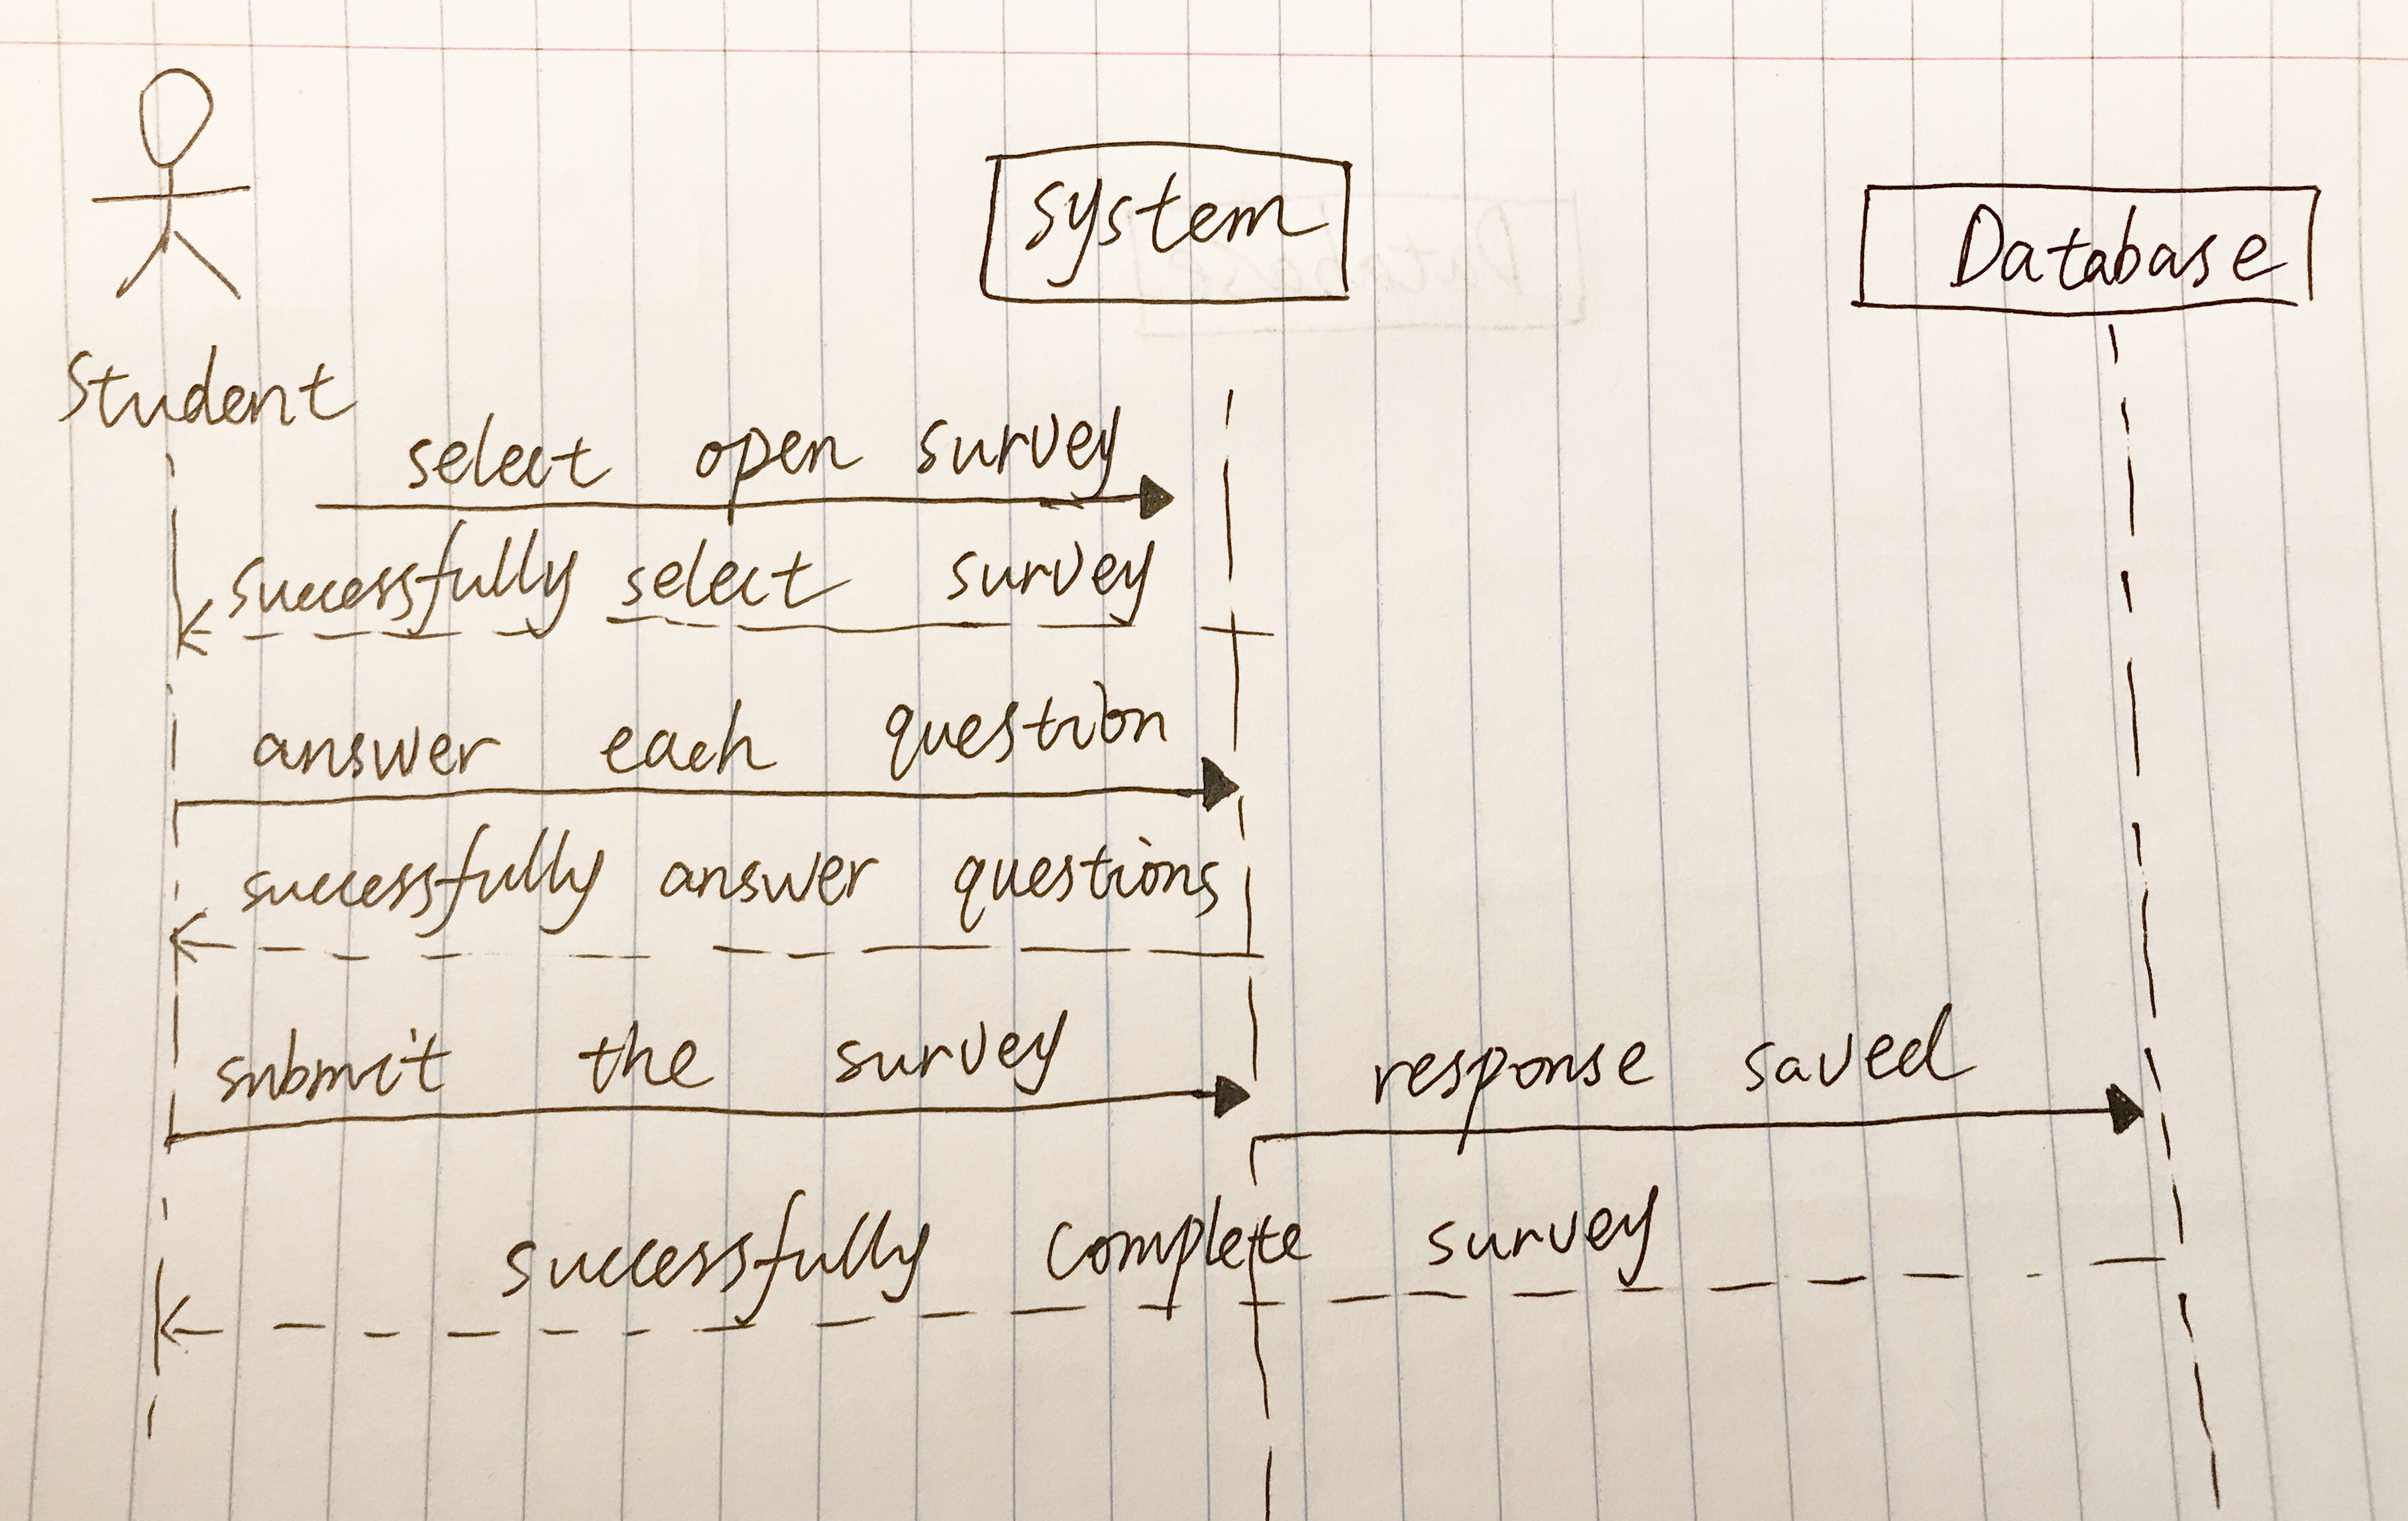 system
Database
Student
select open survey
successfully select survey
answer each question
successfully answer questions
submit the survey
response saved
successfully complete survey